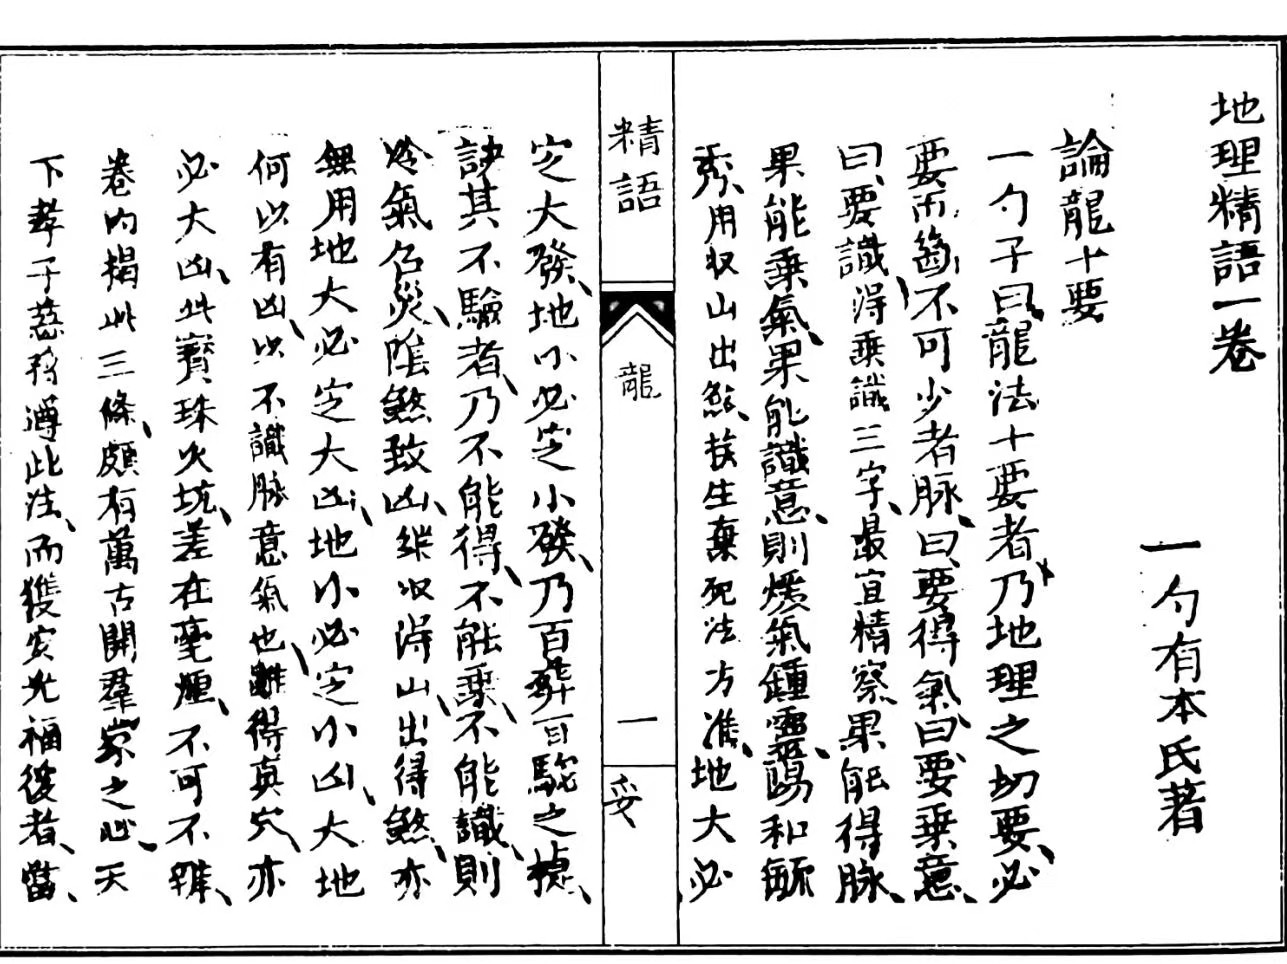 地理精語一卷
一勺有本氏著
論龍十要
一勺子曰、龍法十要者、乃地理之切要、必
要而篤、不可少者脉、曰要得氣、曰要乘意、
曰、要識得乘識三字、最宜精察果能得脉、
果能乘氣、果能識意、則煖氣鍾靈、陽和毓
秀、用收山出煞、扶生棄死法方准、地大必
定大發、地小必定小發、乃百葬百驗之
訣其不驗者、乃不能得、不能乘、不能識、則
冷氣召災、陰煞致凶、縱收得山、出得煞、亦
無用地大必定大凶、地小必定小凶、大地
何以有凶、以不識脉意氣也、雖得真穴、亦
必大凶、此寶珠火坑、差在毫厘、不可不辨、
卷內揭此三條、頗有萬古開羣蒙之心、天
下孝子慈孫遵此法、而獲安允福後者、當
精語
龍
一